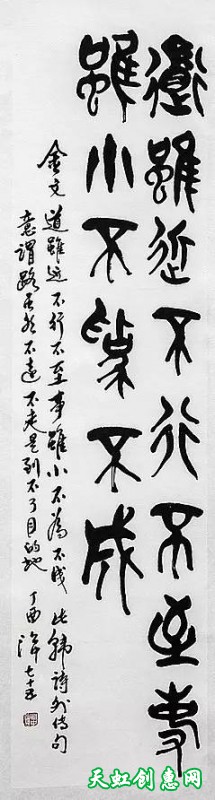 道雖近不行不至事
雖小不為不成
金文 道雖近不行不至事雖小不為不成 此韓詩外傳句
意謂路虽然不遠 不走是到不了目的地 丁酉 七十五
天虹创惠网